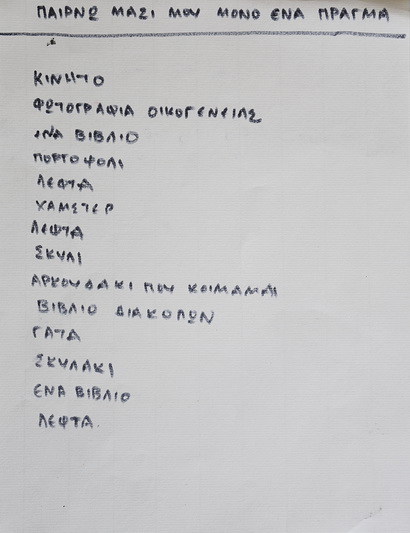 ΠΑΙΡΝΩ ΜΑΖΙ ΜΟΥ ΜΟΝΟ ΕΝΑ ΠΡΑΓΜΑ
ΚΙΝΗΤΟ
ΦΩΤΟΓΡΑΦΙΑ ΟΙΚΟΓΕΝΕΙΑΣ
ΕΝΑ ΒΙΒΛΙΟ
ΠΟΡΤΟΦΟΛΙ
ΛΕΦΤΑ
ΧΑΜΣΤΕΡ
ΛΕΦΤΑ
ΣΚΥΛΙ
ΑΡΚΟΥΔΑΚΙ ΠΟΥ ΚΟΙΜΑΜΑΙ
ΒΙΒΛΙΟ ΔΙΑΚΟΠΩΝ
ΓΑΤΑ
ΣΚΥΛΑΚΙ
ΕΝΑ ΒΙΒΛΙΟ
ΛΕΦΤΑ.